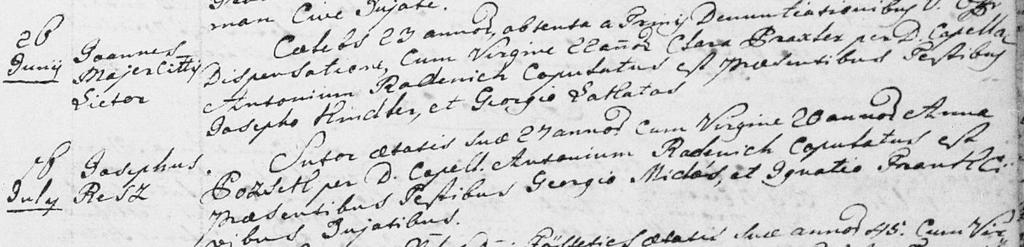 man Cive Injate.
26 Junij Joannes Majercsity Lictor
Cælebs 23 annor, obtenta a Trinis Denuntiationibus
Dispensatione, Cum Virgine 22 annor Clara Praxter per D. Capella
Antonium Radenich Copulatus est præsentibus Testibus
Josepho Hindler, et Georgio Lakatos
July Josephus Resz
Sutor ætatis suæ 27 annor Cum Virgine 20 annor Anna
Pozsek per D. Capell. Antonium Radenich Copulatus est
præsentibus Testibus Georgio Miclos, et Ignatio Frankl Ci
vibus Injatibus.
ætatis suæ annor 45. Cum Vir